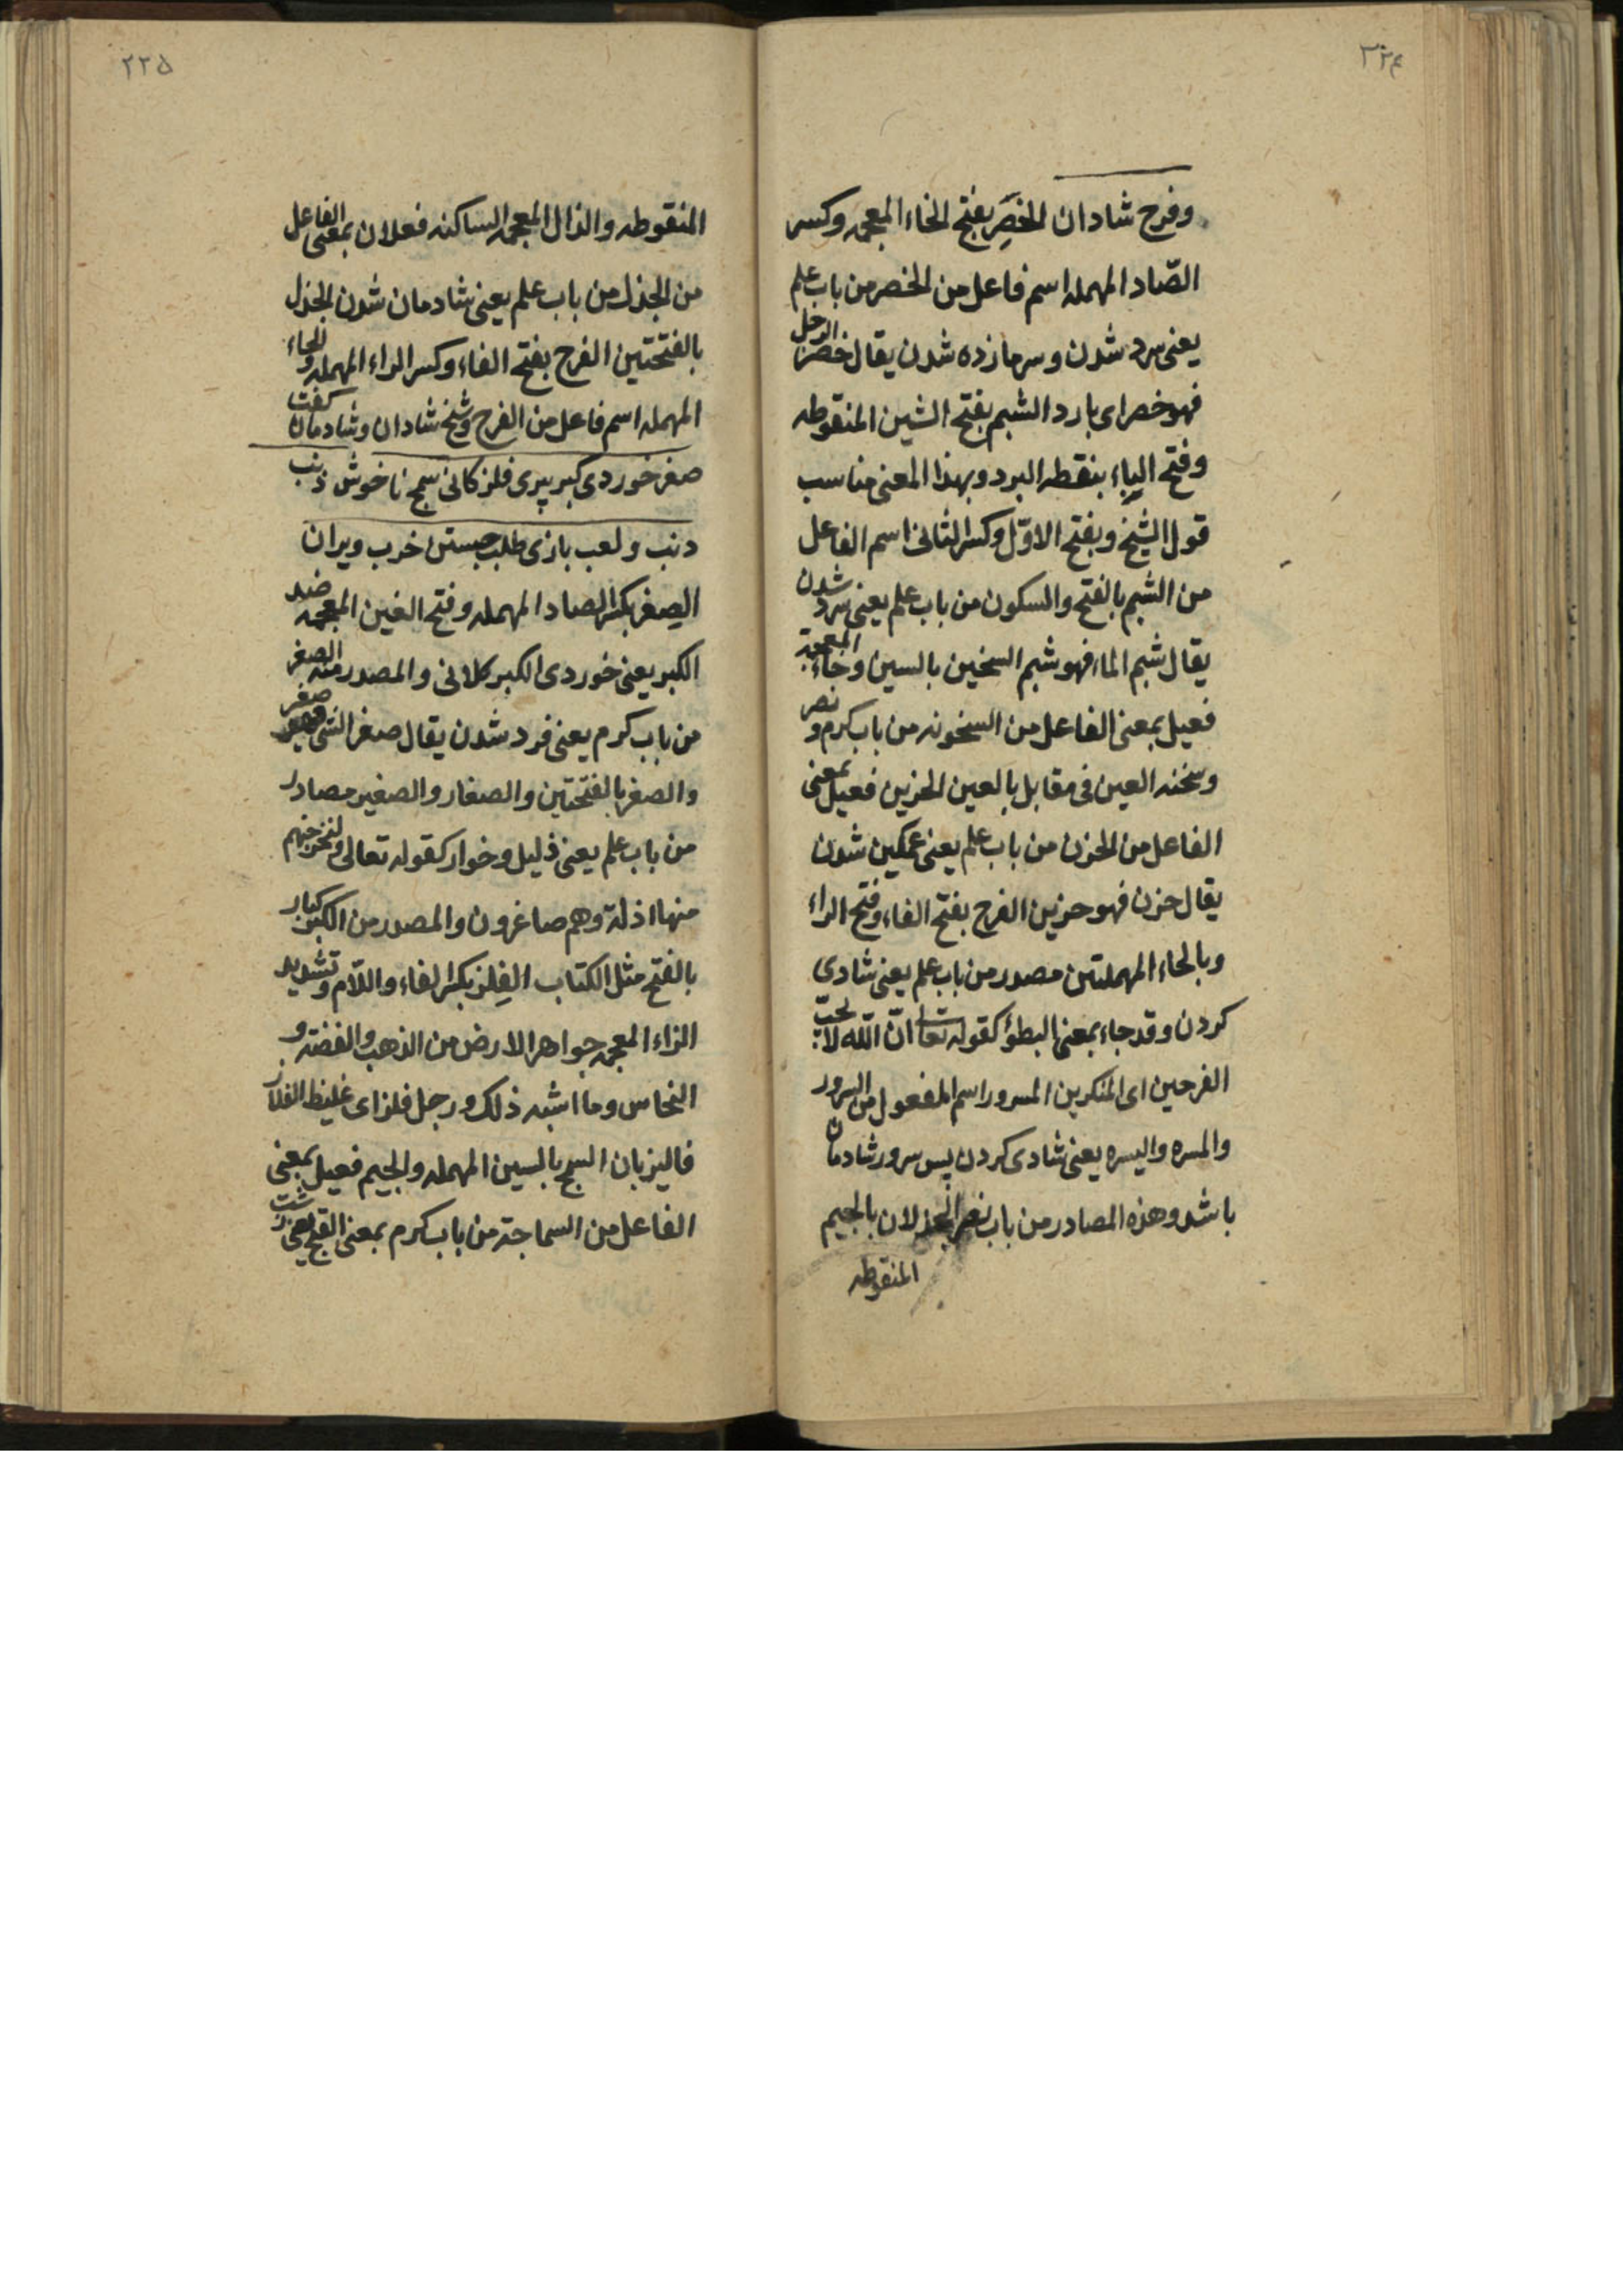 ۳۲۴
وفرح شادان الخَصِر بفتح الخاء المعجمه وکسر
الصّاد المهمله اسم فاعل من الخصر من باب علم
یعنی سرد شدن و سرمازده شدن یقال خصر الرجل
فهو خصر ای بارد الشبم بفتح الشین المنقوطه
وفتح الباء بنقطه البرد وبهذا المعنی مناسب
قول الشیخ وبفتح الاوّل وکسر الثانی اسم الفاعل
من الشبم بالفتح والسکون من باب علم یعنی سرد شدن
یقال شبم الماء فهو شبم السخین بالسین وخاء المعجمة
فعیل بمعنی الفاعل من السخونه من باب کرم و نصر
وسخنه العین فی مقابل بالعین الحزین فعیل بمعنی
الفاعل من الحزن من باب علم یعنی غمکین شدن
یقال حزن فهو حزین الفرح بفتح الفاء وفتح الراء
وبالحاء المهملتین مصدر من باب علم یعنی شادی
کردن وقد جاء بمعنی البطؤ کقوله تعا انّ اللّه لا یحبّ
الفرحین ای المنکرین المسرور اسم المفعول من السرور
والمسره والیسره یعنی شادی کردن پس سرور شادمان
باشد وهذه المصادر من باب نصر الجذلان بالجیم
المنقوطه
۲۲۵
المنقوطه والذال المعجمه الساکنه فعلان بمعنی الفاعل
من الجذل من باب علم یعنی شادمان شدن الجذل
بالفتحتین الفرح بفتح الفاء وکسر الراء المهمله والحاء
المهمله اسم فاعل من الفرح وشیخ شادان وشادمان کفت
صغر خوردی کبر پیری فلز کانی سمج ناخوش ذنب
دنب ولعب بازی طلب جستن خرب ویران
الصِغر بکسر الصاد المهمله وفتح الغین المعجمه ضد
الکبر یعنی خوردی الکبر کلانی والمصدر منه الصغر
من باب کرم یعنی خرد شدن یقال صغر الشی فهو صغر
والصغر بالفتحتین والصغار والصغیر مصادر
من باب علم یعنی ذلیل وخوار کقوله تعالی ولنخرجنهم
منها اذلة وهم صاغرون والمصدر من الکبر کبار
بالفتح مثل الکتاب الفِلز بکسر الفاء واللّام وتشدید
الزاء المعجمه جواهر الارض من الذهب والفضة و
النحاس وما اشبه ذلک ورجل فلز ای غلیظ الفلاز
فالیزبان السمج بالسین المهمله والجیم فعیل بمعنی
الفاعل من السماجة من باب کرم بمعنی القبح یعنی زشت